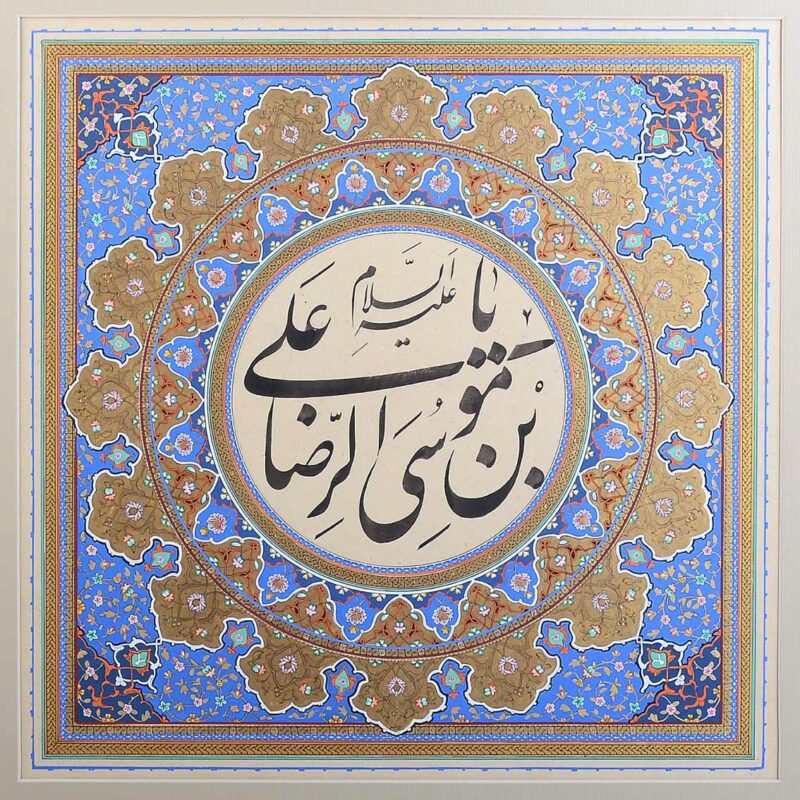 یا علی
بن موسی الرضا
علیه السلام